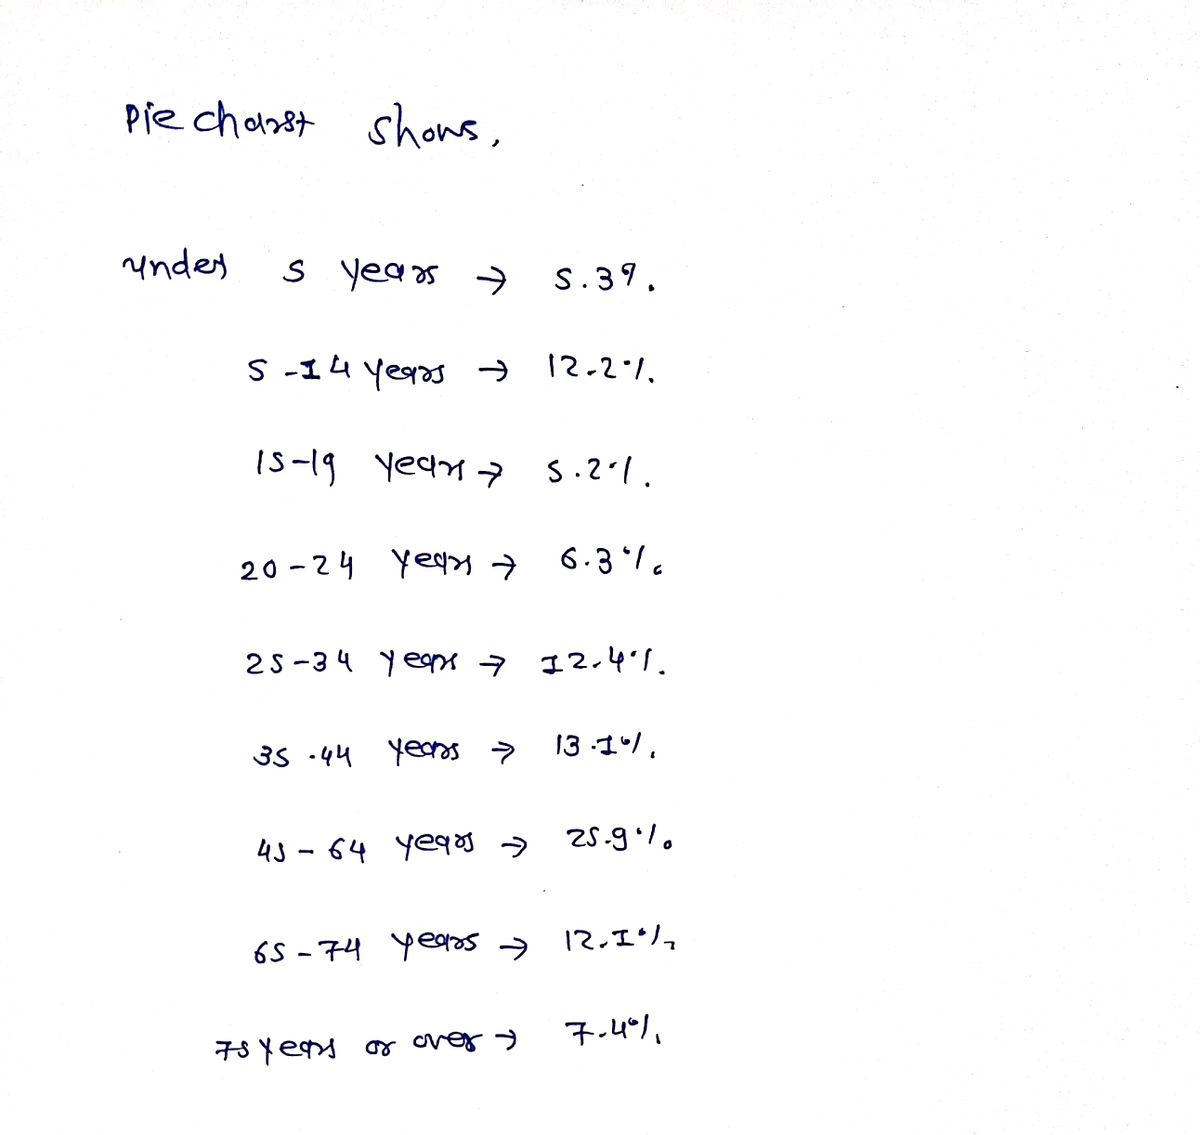 Pie chart shows,
under 5 years → 5.3%.
5-14 years → 12.2%.
15-19 years → 5.2%.
20-24 years → 6.3%.
25-34 years → 12.4%.
35-44 years → 13.1%.
45-64 years → 25.9%
65-74 years → 12.1%
75 years or over → 7.4%